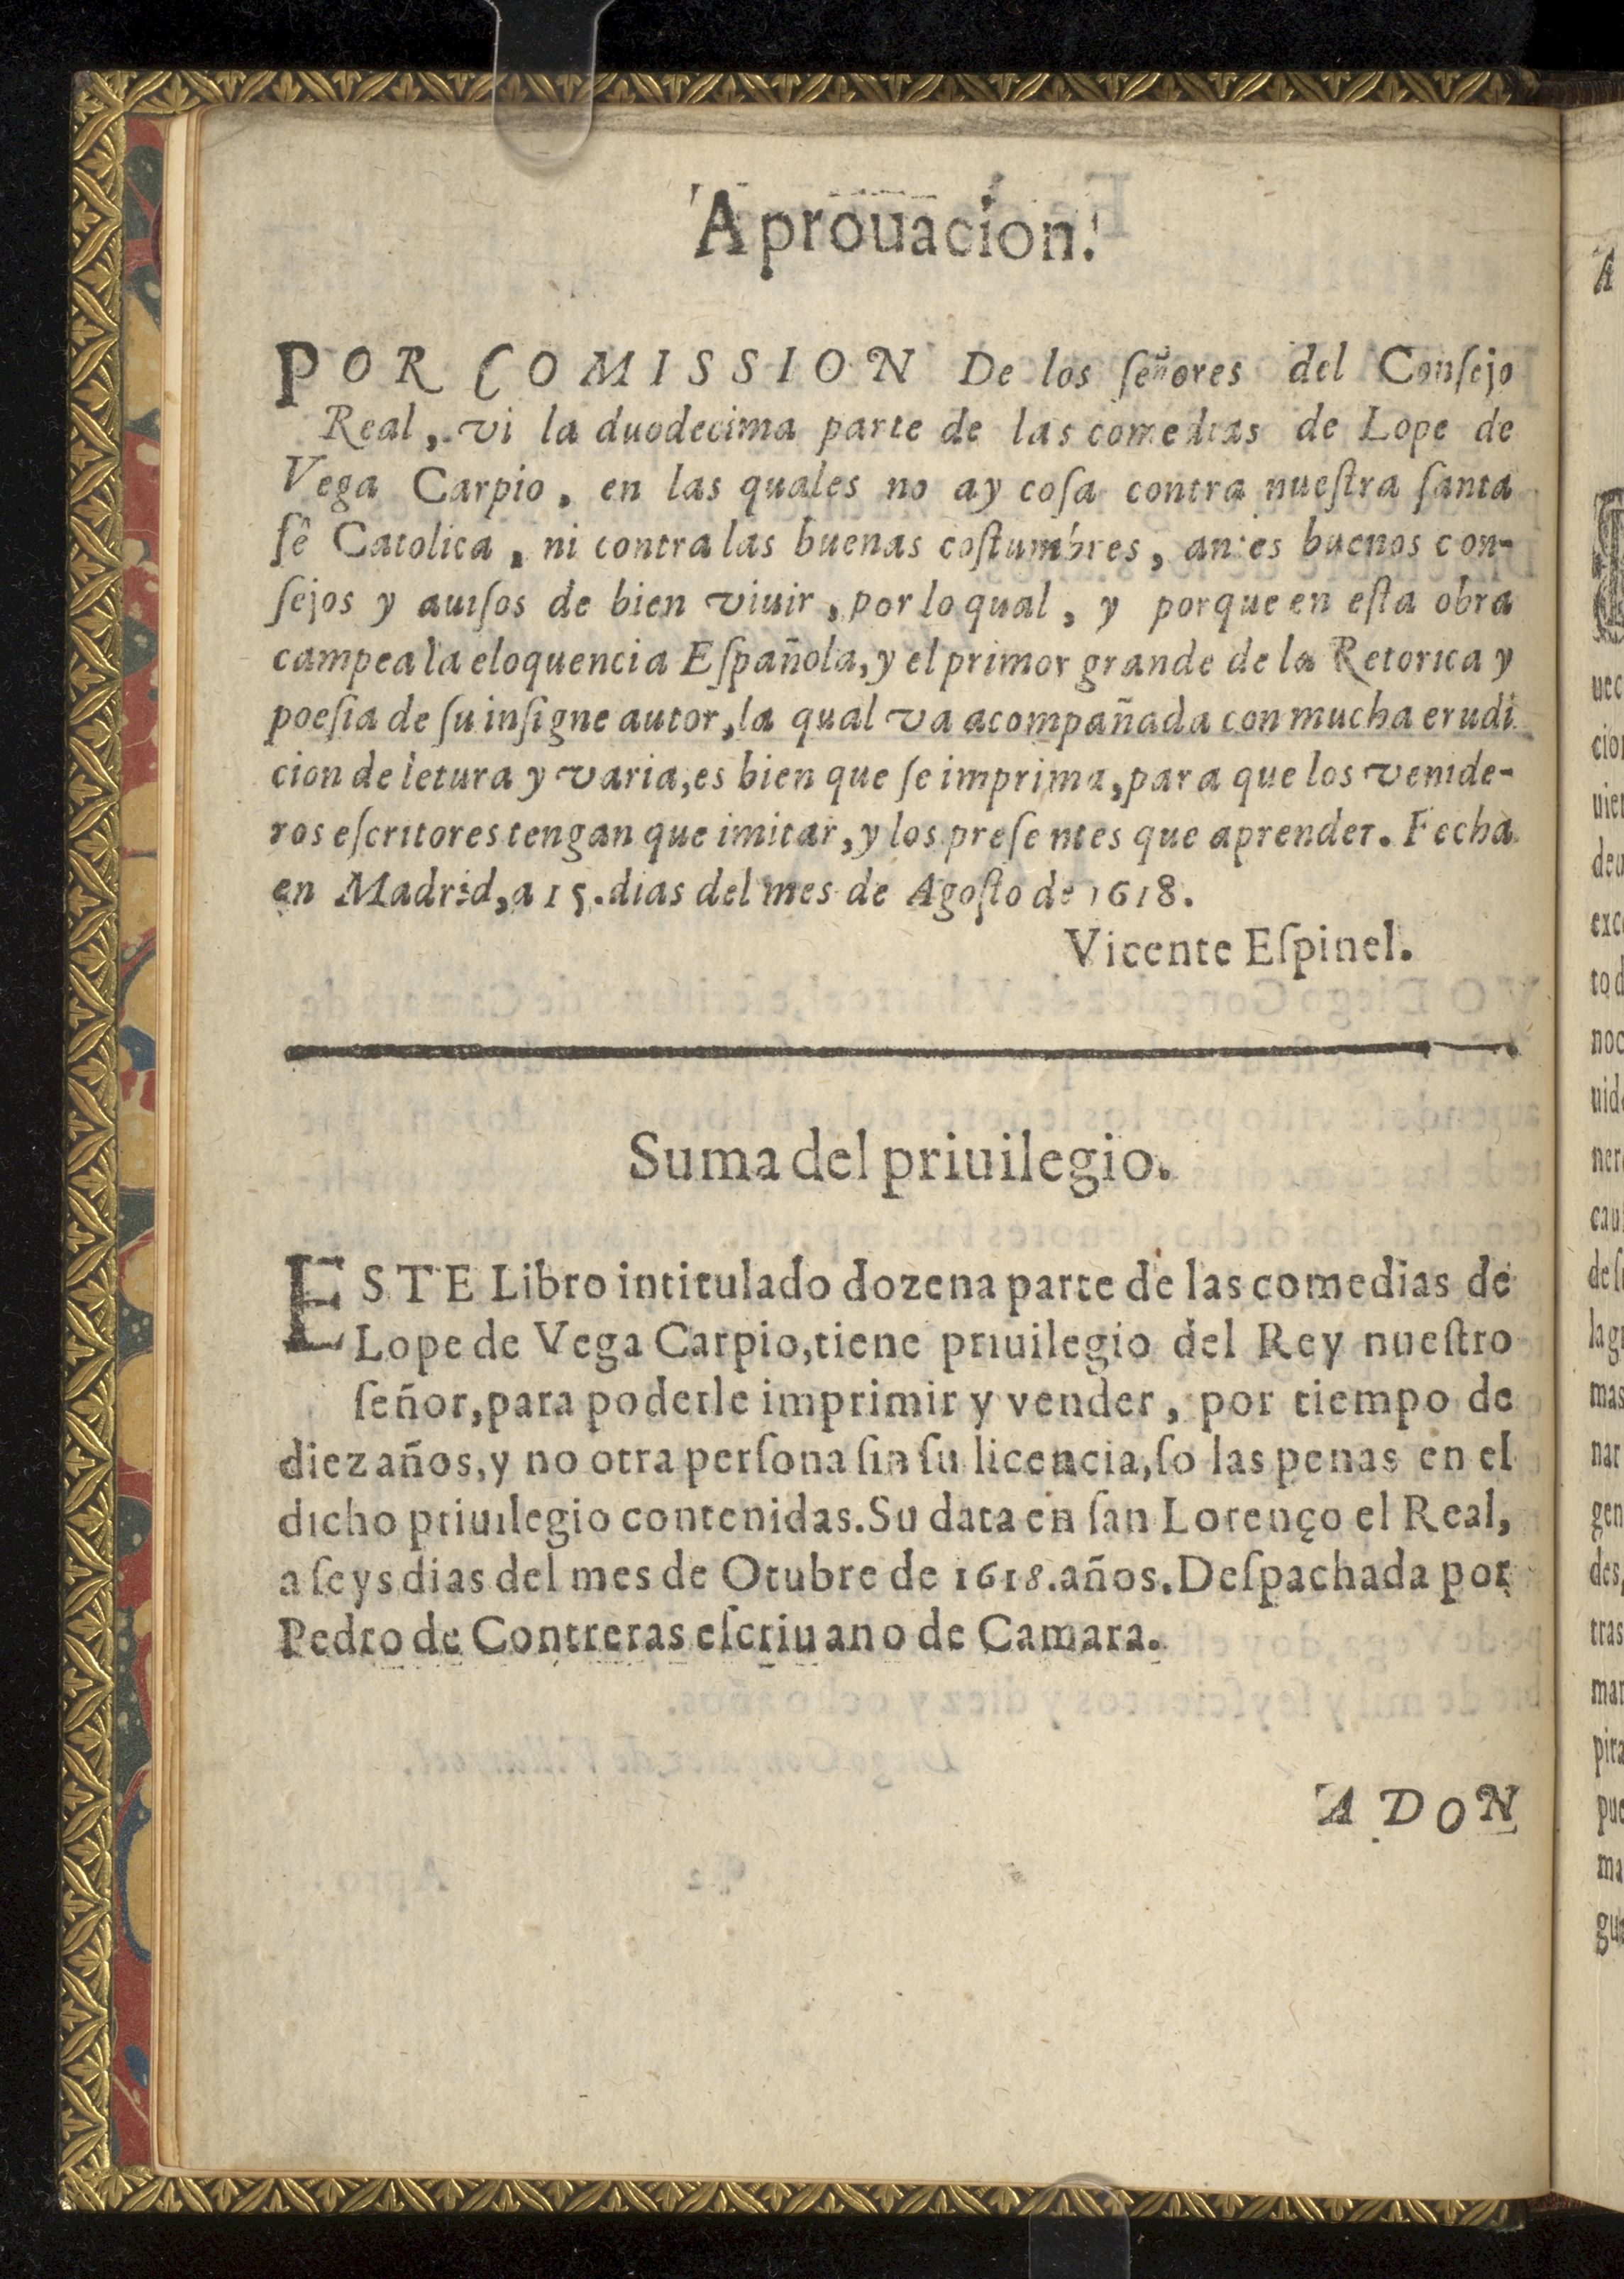 Aprouacion.
POR COMISSION De los ſeñores del Conſejo
Real, vi la duodecima parte de las comedias de Lope de
Vega Carpio, en las quales no ay coſa contra nueſtra ſanta
fê Catolica, ni contra las buenas coſtumbres, antes buenos con-
ſejos y auiſos de bien viuir, por lo qual, y porque en eſta obra
campea la eloquencia Eſpañola, y el primor grande de la Retorica y
poeſia de ſu inſigne autor, la qual va acompañada con mucha erudi
cion de letura y varia, es bien que ſe imprima, para que los venide-
ros eſcritores tengan que imitar, y los preſentes que aprender. Fecha
en Madrid, a 15. dias del mes de Agoſto de 1618.
Vicente Eſpinel.
Suma del priuilegio.
ESTE Libro intitulado dozena parte de las comedias de
Lope de Vega Carpio, tiene priuilegio del Rey nueſtro
ſeñor, para poderle imprimir y vender, por tiempo de
diez años, y no otra perſona ſin ſu licencia, ſo las penas en el
dicho priuilegio contenidas. Su data en ſan Lorenço el Real,
a ſeys dias del mes de Otubre de 1618. años. Deſpachada por
Pedro de Contreras eſcriuano de Camara.
A DON